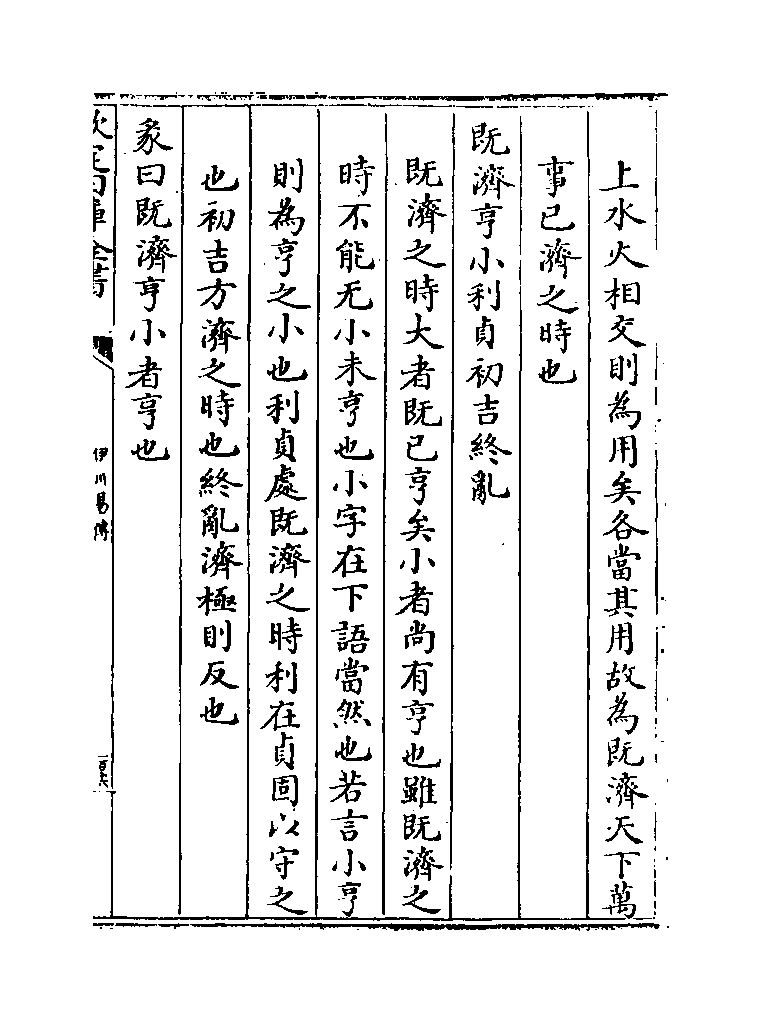 上水火相交則為用矣各當其用故為既濟天下萬
事已濟之時也
既濟亨小利貞初吉終亂
既濟之時大者既已亨矣小者尚有亨也雖既濟之
時不能无小未亨也小字在下語當然也若言小亨
則為亨之小也利貞處既濟之時利在貞固以守之
也初吉方濟之時也終亂濟極則反也
彖曰既濟亨小者亨也
欽定四庫全書
伊川易傳